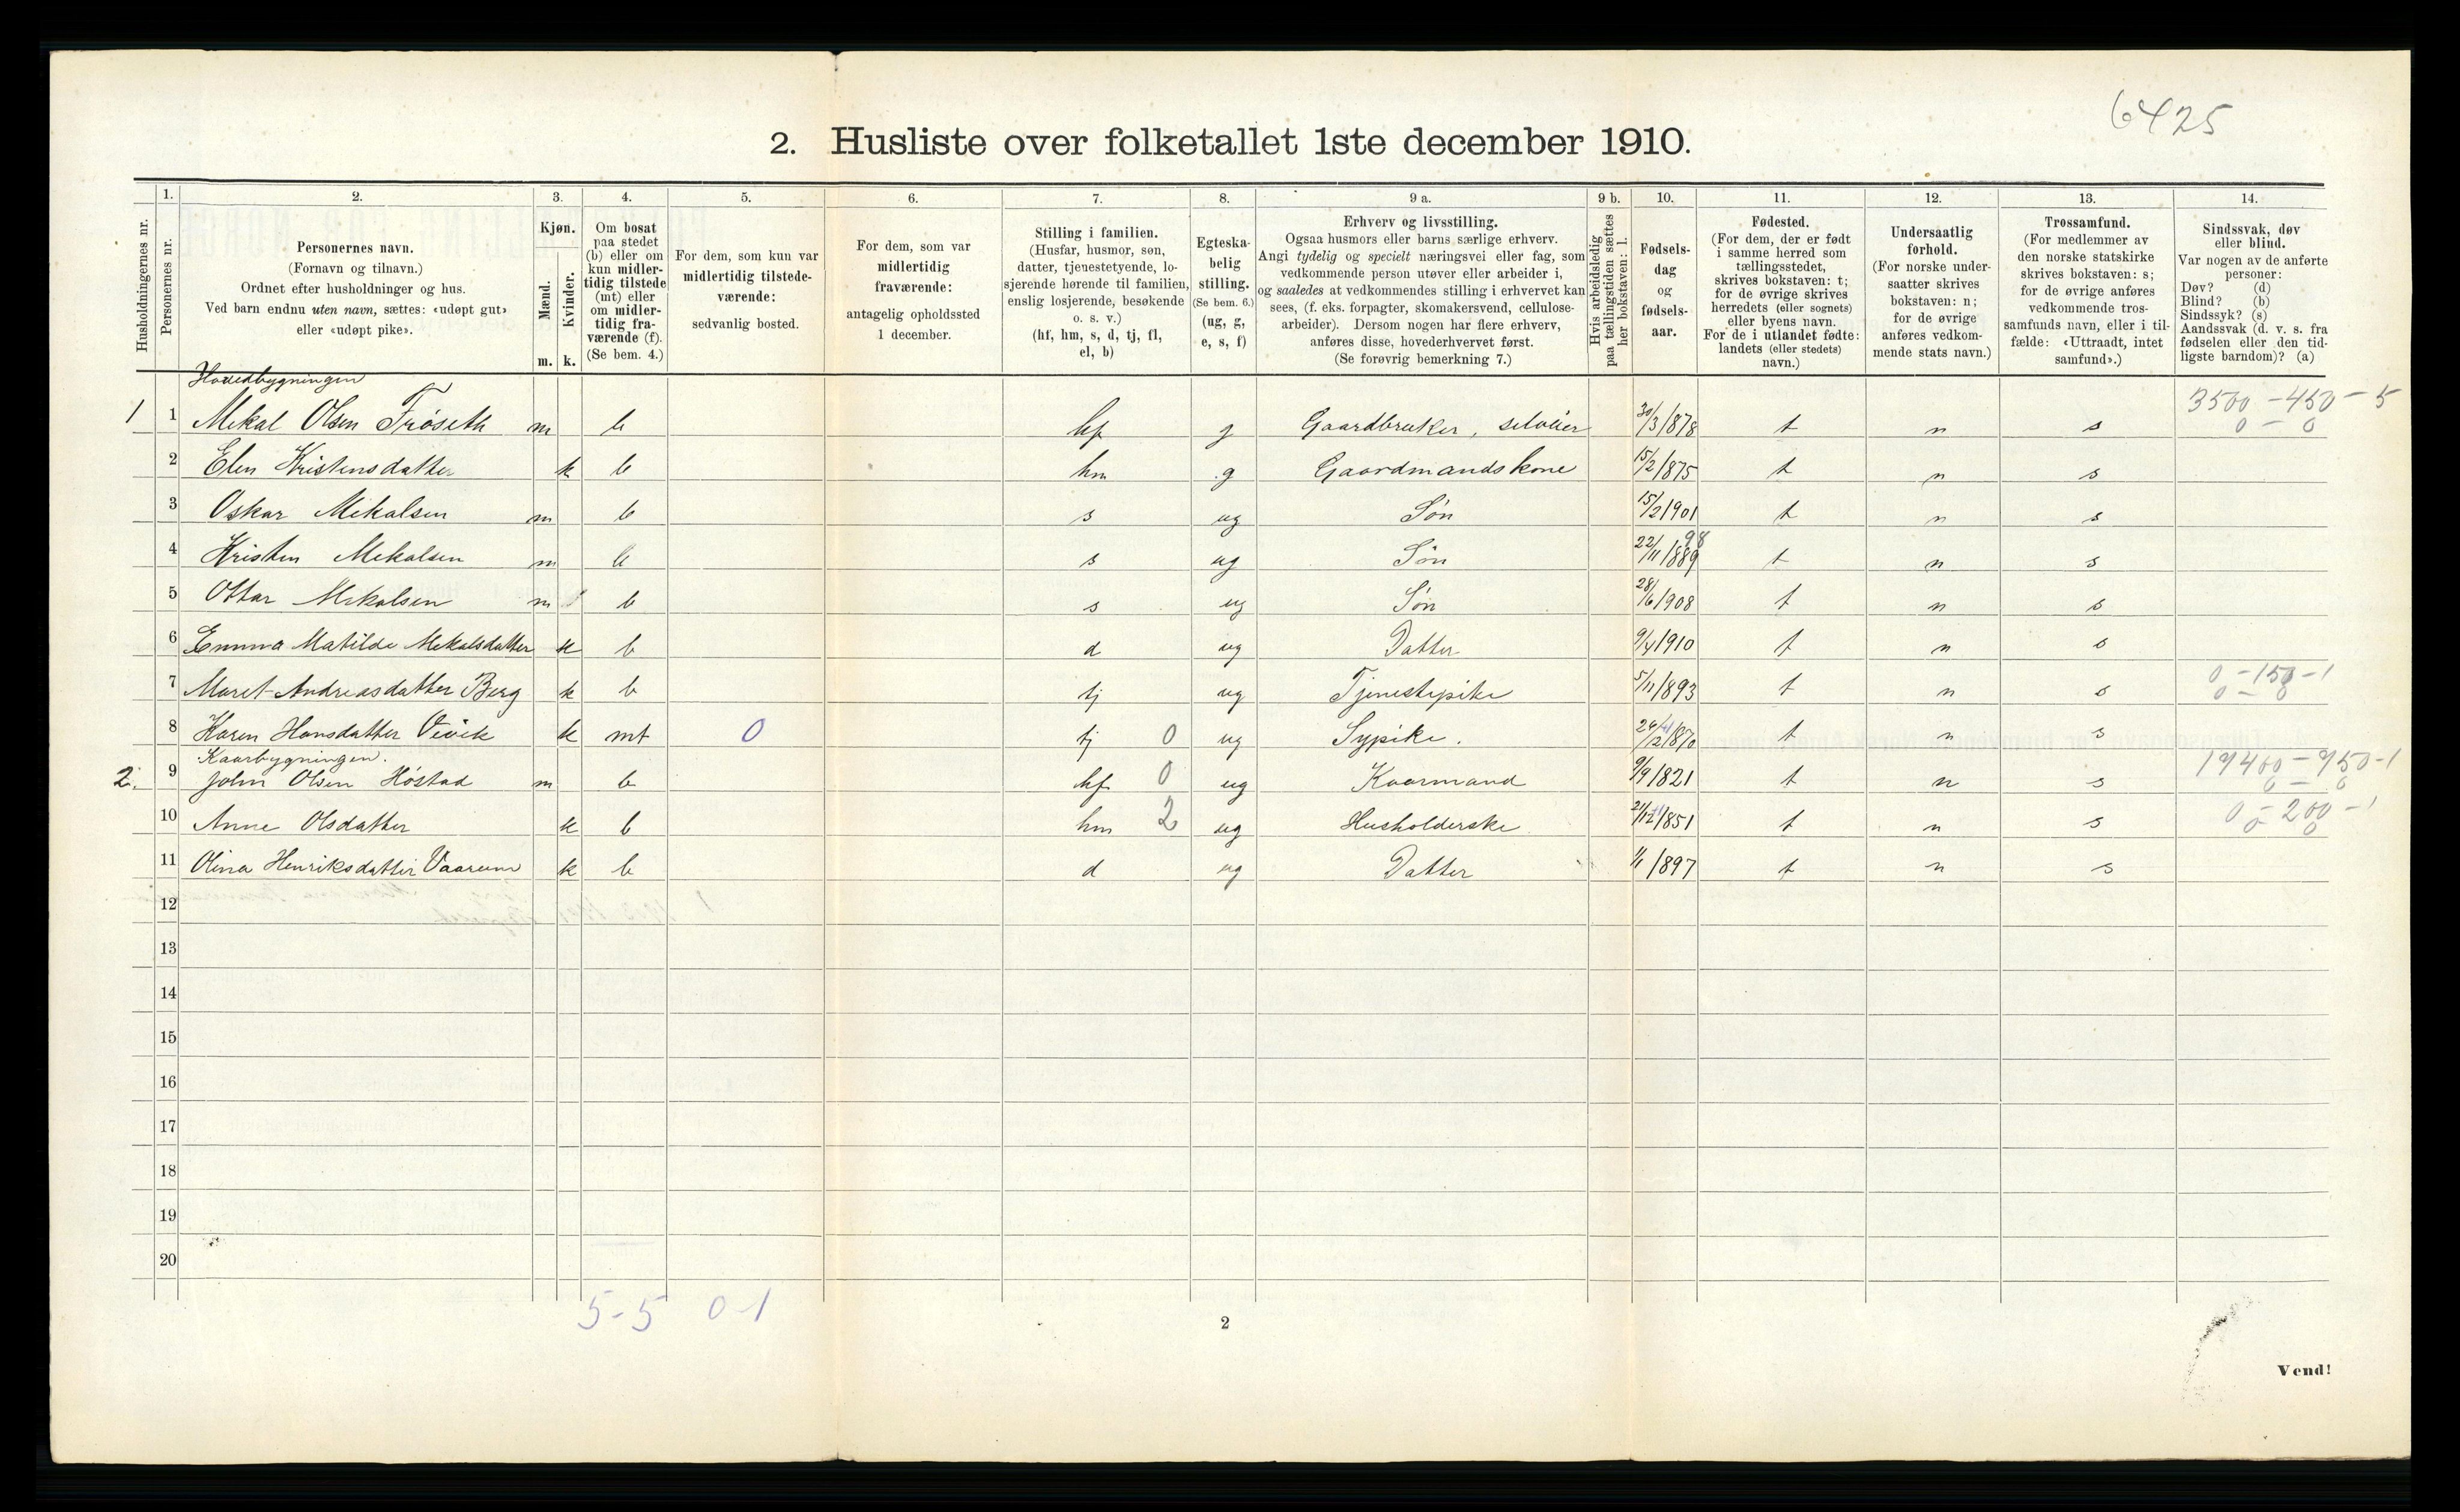 6425
2. Husliste over folketallet 1ste december 1910.
Husholdningernes nr.
1.
Personernes nr.
2.
Personernes navn.
(Fornavn og tilnavn.)
Ordnet efter husholdninger og hus.
Ved barn endnu uten navn, sættes: «udøpt gut»
eller «udøpt pike».
3.
Kjøn.
Mænd.
Kvinder.
m. k.
4.
Om bosat
paa stedet
(b) eller om
kun midler-
tidig tilstede
(mt) eller
om midler-
tidig fra-
værende (f).
(Se bem. 4.)
5.
For dem, som kun var
midlertidig tilstede-
værende:
sedvanlig bosted.
6.
For dem, som var
midlertidig
fraværende:
antagelig opholdssted
1 december.
7.
Stilling i familien.
(Husfar, husmor, søn,
datter, tjenestetyende, lo-
sjerende hørende til familien,
enslig losjerende, besøkende
o. s. v.)
(hf, hm, s, d, tj, fl,
el, b)
8.
Egteska-
belig
stilling.
(Se bem. 6.)
(ug, g,
e, s, f)
9 a.
Erhverv og livsstilling.
Ogsaa husmors eller barns særlige erhverv.
Angi tydelig og specielt næringsvei eller fag, som
vedkommende person utøver eller arbeider i,
og saaledes at vedkommendes stilling i erhvervet kan
sees, (f. eks. forpagter, skomakersvend, cellulose-
arbeider). Dersom nogen har flere erhverv,
anføres disse, hovederhvervet først.
(Se forøvrig bemerkning 7.)
9 b.
Hvis arbeidsledig
paa tællingstiden sættes
her bokstaven: l.
10.
Fødsels-
dag
og
fødsels-
aar.
11.
Fødested.
(For dem, der er født
i samme herred som
tællingsstedet,
skrives bokstaven: t;
for de øvrige skrives
herredets (eller sognets)
eller byens navn.
For de i utlandet fødte:
landets (eller stedets)
navn.)
12.
Undersaatlig
forhold.
(For norske under-
saatter skrives
bokstaven: n;
for de øvrige
anføres vedkom-
mende stats navn.)
13.
Trossamfund.
(For medlemmer av
den norske statskirke
skrives bokstaven: s;
for de øvrige anføres
vedkommende tros-
samfunds navn, eller i til-
fælde: «Uttraadt, intet
samfund».)
14.
Sindssvak, døv
eller blind.
Var nogen av de anførte
personer:
Døv? (d)
Blind? (b)
Sindssyk? (s)
Aandssvak (d. v. s. fra
fødselen eller den tid-
ligste barndom)? (a)
Hovedbygningen
1 1 Mekal Olsen Frøseth m b hf g Gaardbruker, selveier 30/3/878 t n s 3500-450-5 0-0
2 Elen Kristensdatter k b hm g Gaardmandskone 15/2/875 t n s
3 Oskar Mekalsen m b s ug Søn 15/2 1901 t n s
4 Kristen Mekalsen m b s ug Søn 22/11/889 98 t n s
5 Ottar Mekalsen m b s ug Søn 28/6/908 t n s
6 Emma Matilde Mekalsdatter k b d ug Datter 9/4 1910 t n s
7 Maret Andreasdatter Berg k b tj ug Tjenestepike 5/11/893 t n s 0-150-1 0-0
8 Karen Hansdatter k mt 0 tj 0 ug Sypike. /870 t n s
Kaarbygningen.
2. 9 John Olsen Høstad m b hf 0 ug Kaarmand 9/9/821 t n s 19400-950-1 0-0
10 Anne Olsdatter k b hm 2 ug Husholderske 21/12/851 t n s 0-200-1 0-0
11 Olina Henriksdatter Vaarum k b d ug Datter 1/1/897 t n s
12
13
14
15
16
17
18
19
20
5-5 0-1
2
Vend!